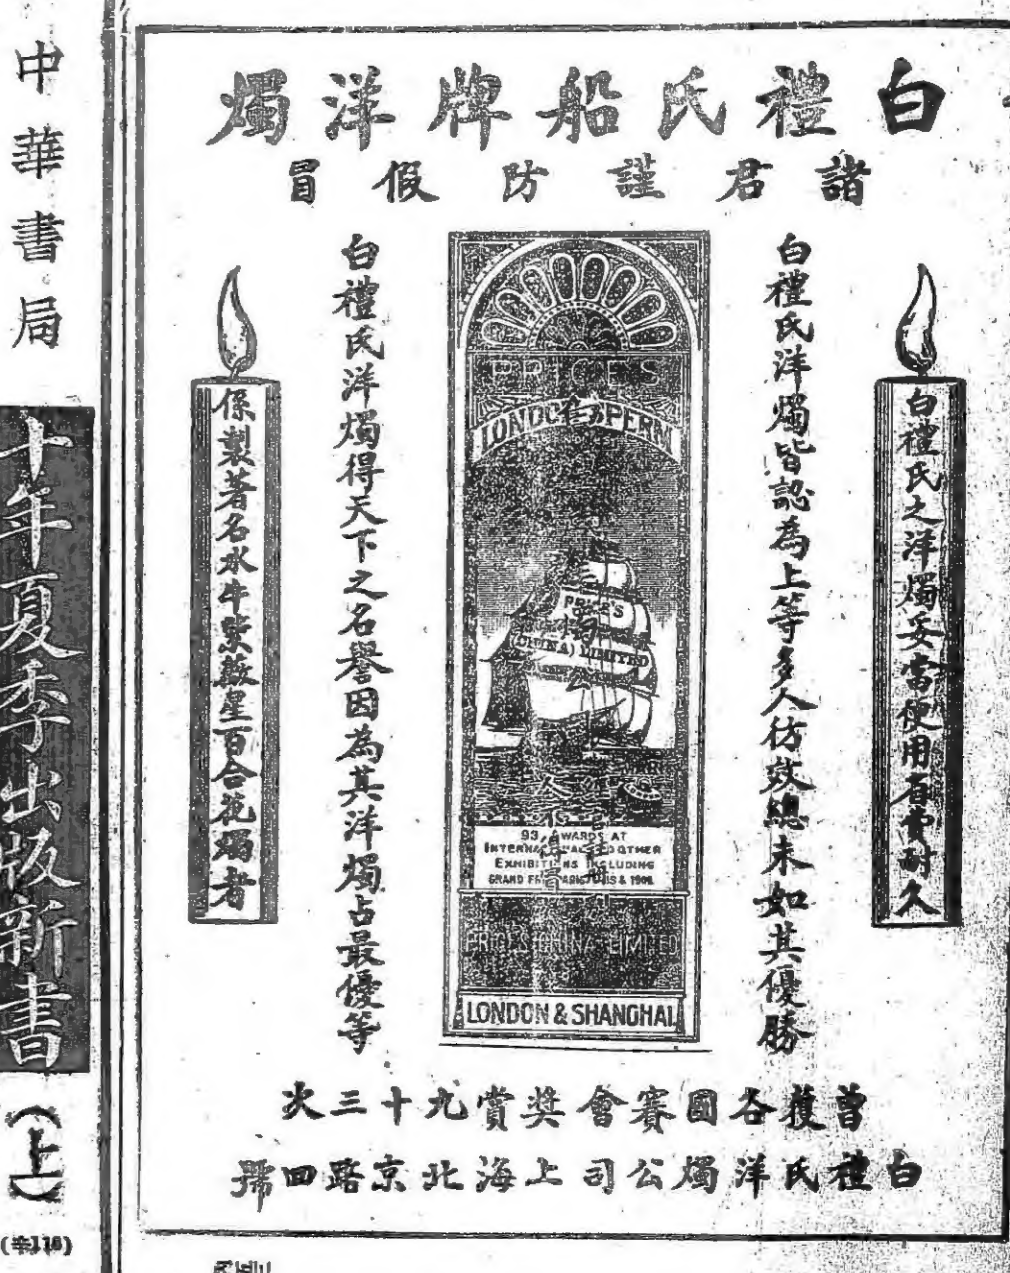 白禮氏船牌洋燭
諸君謹防假冒
白禮氏之洋燭妥當便用有光耐久
白禮氏洋燭皆認為上等多人仿效總未如其優勝
PRICE'S
LONDON SPERM
PRICE'S
(CHINA) LIMITED
93 AWARDS AT
INTERNATIONAL AND OTHER
EXHIBITIONS INCLUDING
GRAND PRIX PARIS & 1908.
PRICE'S (CHINA) LIMITED
LONDON & SHANGHAI.
白禮氏洋燭得天下之名譽因為其洋燭占最優等
係製著名水牛紫薇星百合花燭者
曾獲各國賽會獎賞九十三次
白禮氏洋燭公司上海北京路四號
中華書局
十年夏季出版新書
(上)